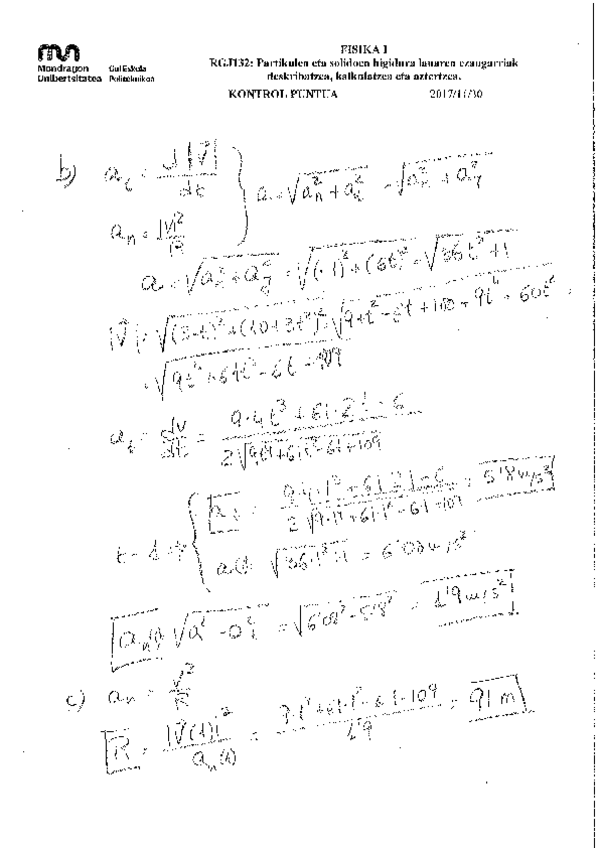 FISIKA I
Mondragon Goi Eskola
Unibertsitatea Politeknikoa
RGJ132: Partikulen eta solidoen higidura lauaren ezaugarriak
deskribatzea, kalkulatzea eta aztertzea.
KONTROL PUNTUA 2017/11/30
b) a_t = d|V̄|/dt
a_n = |V|²/R } a = √(a_n² + a_t²) = √(a_x² + a_y²)
a = √(a_x² + a_y²) = √((-1)² + (6t)²) = √(36t² + 1)
|V̄| = √((3-t)² + (10+3t²)²) = √(9+t²-6t+100+9t⁴+60t²)
= √(9t⁴+61t²-6t+109)
a_t = dv/dt = (9·4t³+61·2t-6)/(2√(9t⁴+61t²-6t+109))
t=1 => { a_t = (9·4·1³+61·2·1-6)/(2√(9·1⁴+61·1²-6·1+109)) = 5'8 m/s²
a(1) = √(36·1²+1) = 6'08 m/s²
a_n(1) = √(a²-a_t²) = √(6'08²-5'8²) = 1'9 m/s²
c) a_n = v²/R
R = |V̄(1)|²/a_n(1) = (9·1⁴+61·1²-6·1+109)/1'9 = 91 m